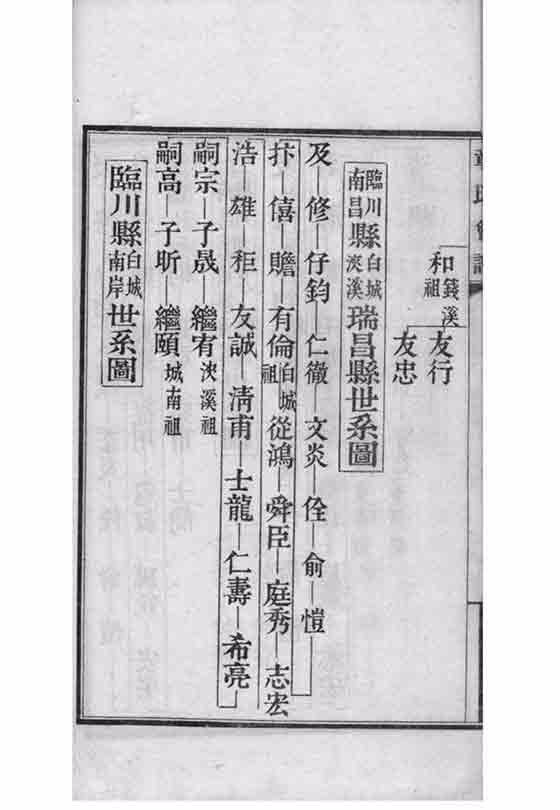 和錢溪祖
友行
友忠
臨川南昌縣白城浹溪瑞昌縣世系圖
及修仔鈞仁徹文炎佺俞愷
卞僖贍有倫白城祖從鴻舜臣庭秀志宏
浩雄秬友誠淸甫士龍仁壽希亮
嗣宗子晟繼宥浹溪祖
嗣高子昕繼頤城南祖
臨川縣白城南岸世系圖